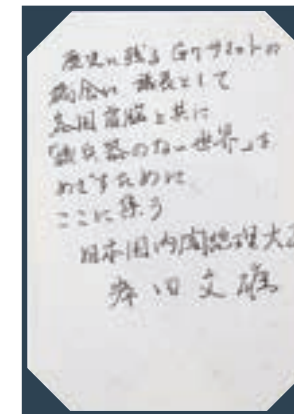 歴史に残るG7サミットの
機会に議長として
各国首脳と共に
「核兵器のない世界」を
めざすために
ここに集う
日本国内閣総理大臣
岸田文雄